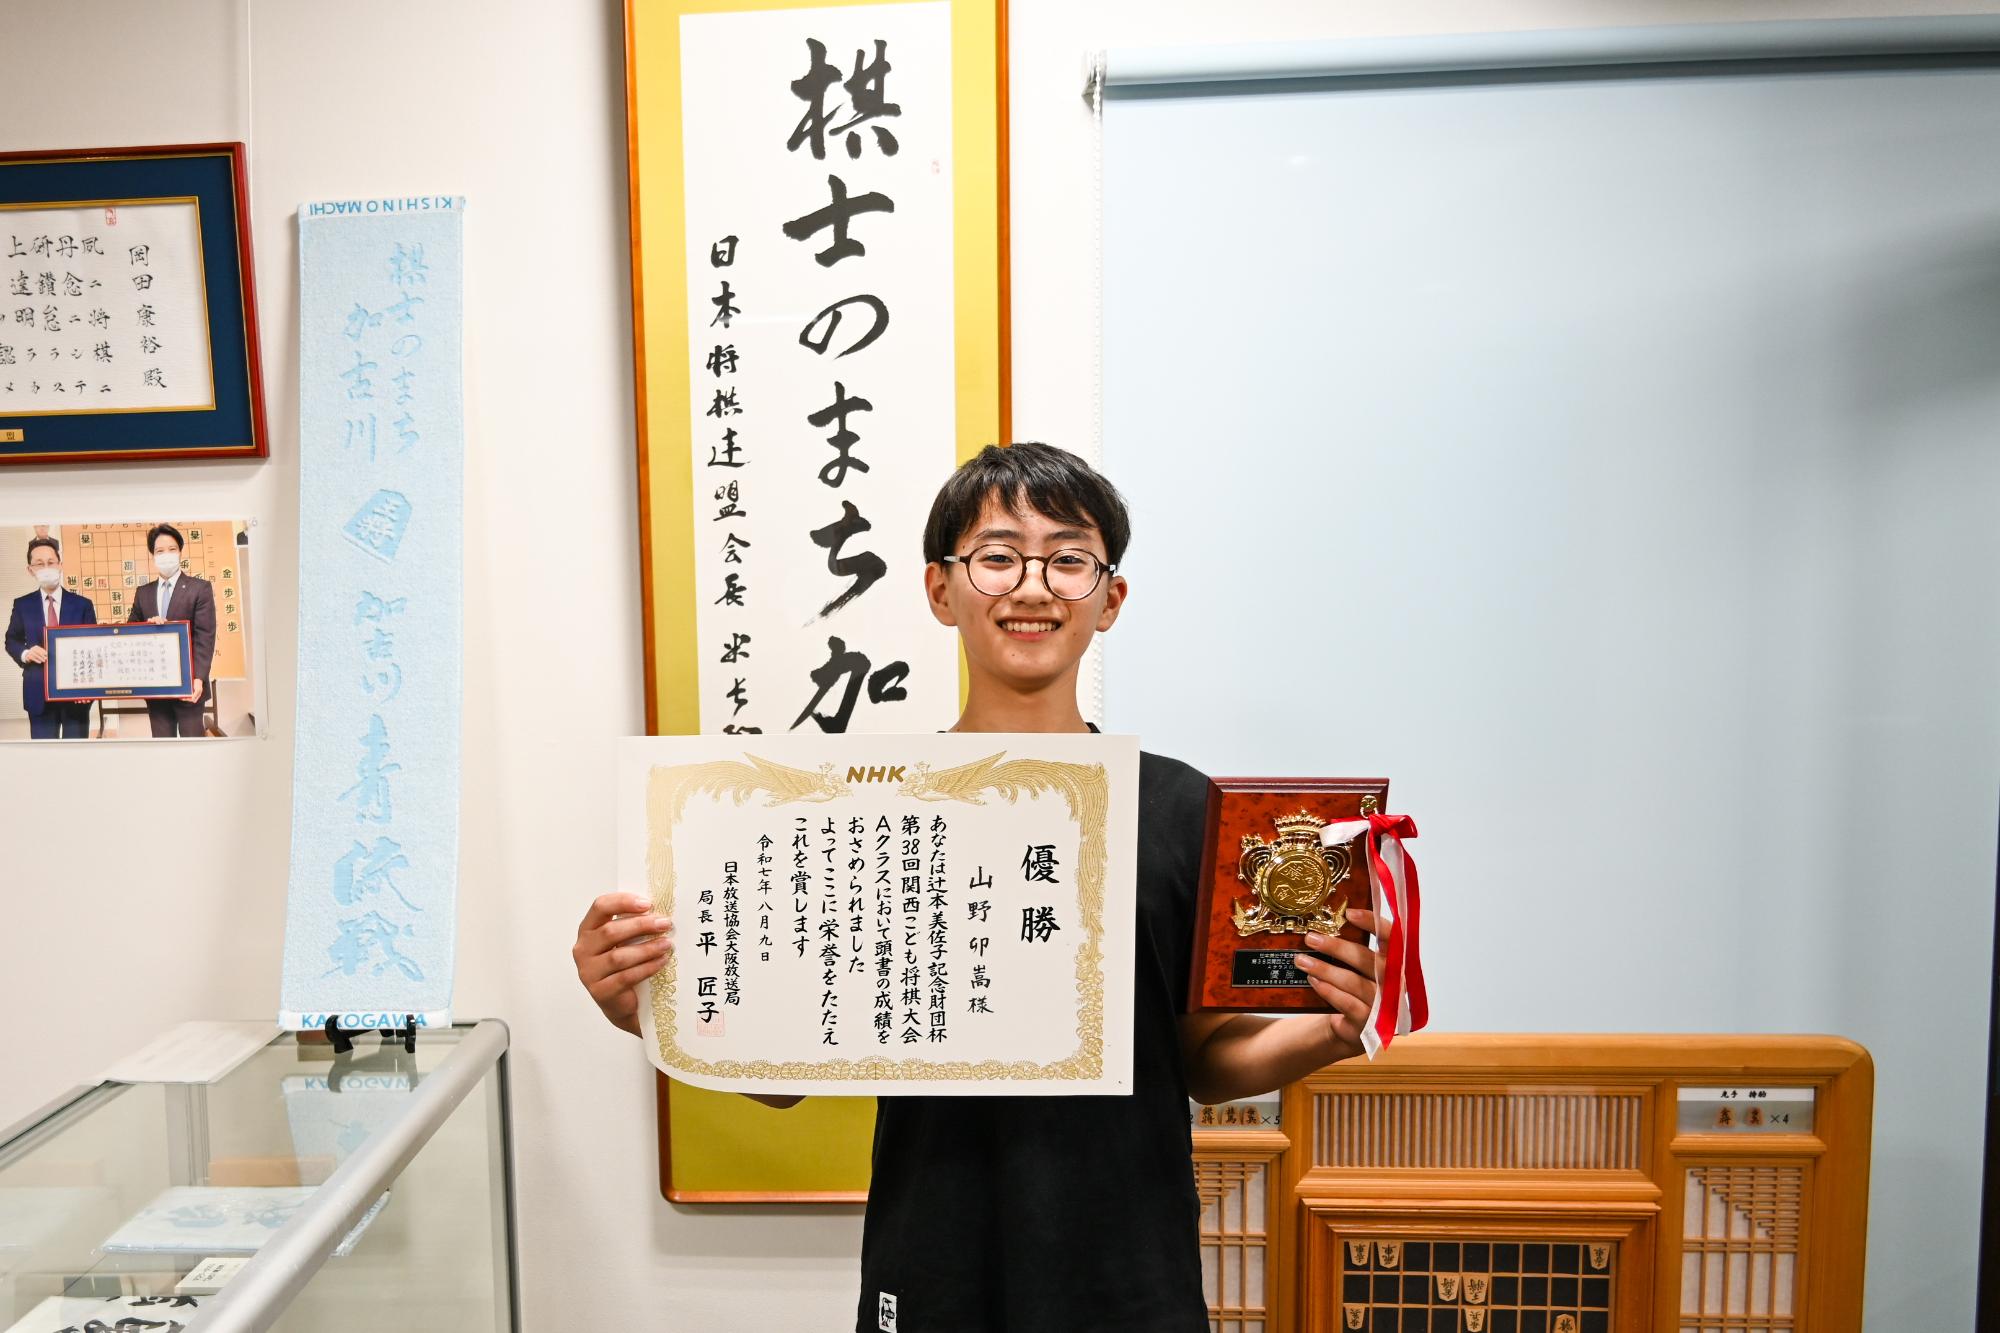 棋士のまち加
日本将棋連盟会長 米長
岡田康裕殿
夙ニ将棋ニ
丹念怠ラステ
研鑽
上達
KISHINO MACHI
棋士のまち
加古川
加古川青流戦
KAKOGAWA
NHK
優勝
山野 卯嵩様
あなたは辻本美佐子記念財団杯
第38回関西こども将棋大会
Aクラスにおいて頭書の成績を
おさめられました
よってここに栄誉をたたえ
これを賞します
令和七年八月九日
日本放送協会大阪放送局
局長 平 匠子
優勝
×5
先手 持駒
×4